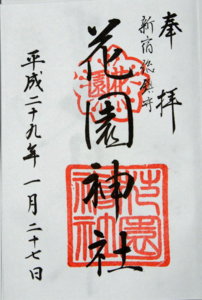 奉拝
新宿総鎮守
花園神社
平成二十九年一月二十七日
花園神社